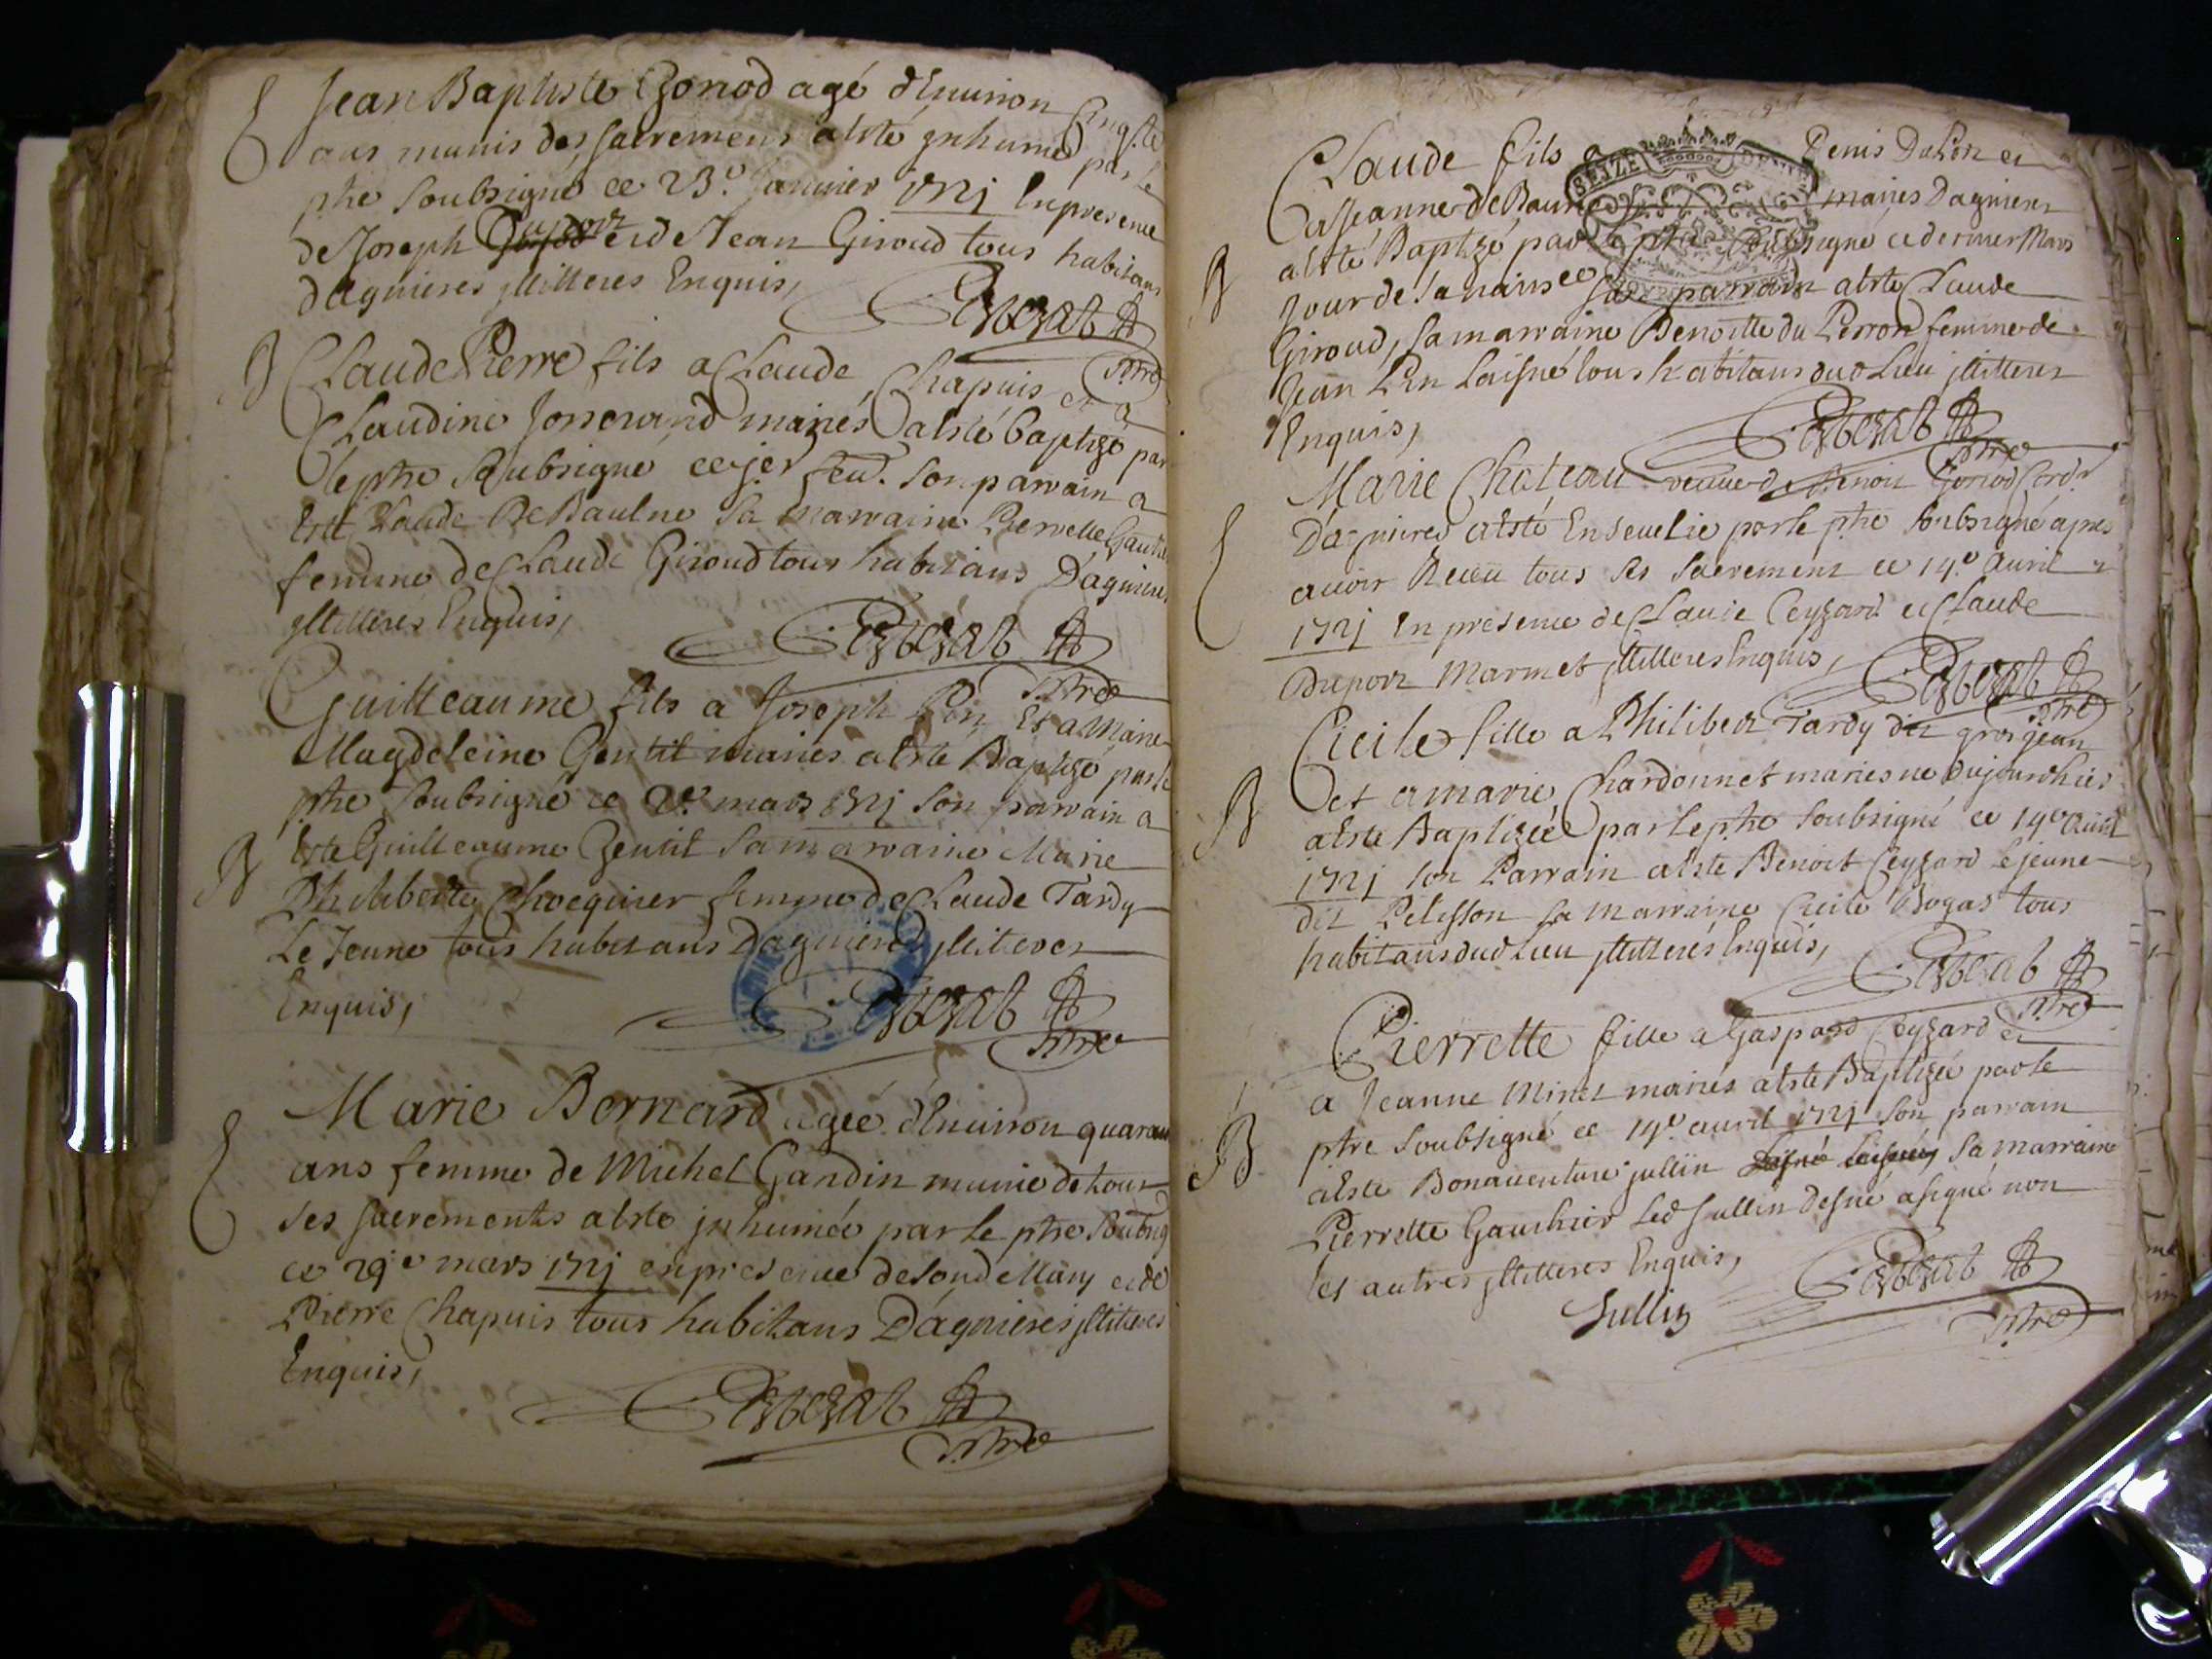 E Jean Baptiste Gonod agé d'Enuiron Cinqte
ans munis des sacremens a esté jnhumé par le
ptre soubsigné ce 23e Januier 1721 En presence
de Joseph Dupont et de Jean Giroud tous habitans
d'agnieres jlliteres Enquis,
ptre
B Claude Pierre fils a Claude Chapuis et a
Claudine Josserand mariés a esté baptizé par
le ptre soubsigné ce jer feu. son parrain a
esté Claude De Baulne sa marraine Pierrette
femme de Claude Giroud tous habitans D'agnieres
jlliteres Enquis,
ptre
Guilleaume fils a Joseph Pin Et a Marie
Magdeleine Gentil mariés a esté Baptizé par le
ptre soubsigné ce 2e mars 1721 son parrain a
B esté Guilleaume Gentil sa marraine Marie
Philiberte Chocquier femme de Claude Tardy
Le Jeune tous habitans D'agnieres jlliteres
Enquis,
ptre
E Marie Bernard agée d'Enuiron quarante
ans femme de Michel Gandin munie de tous
ses sacrements a esté jnhumée par le ptre soubsig
ce 29e mars 1721 en presence de son d mary et de
Pierre Chapuis tous habitans D'agnieres jlliteres
Enquis,
ptre
Claude fils a Denis Dupon et
a Jeanne De Baune mariés D'agnieres
SEIZE
B a esté Baptizé par le ptre soubsigné ce dernier Mars
Jour de sa naissce son parrain a esté Claude
Giroud, sa marraine Benoitte du Perron femme de
Jean Pin laisné tous habitans dud Lieu jlliteres
Enquis,
ptre
Marie Chateau veuue de Benoit Gonod Cordr
E D'agnieres a esté Enseuelie par le ptre soubsigné apres
auoir Receu tous ses sacremens ce 14e auril
1721 En presence de Claude Ceyzard et Claude
Dupont Marmet jlliteres Enquis,
ptre
Cicile fille a Philibert Tardy dit gros jean
B et a marie Chardonnet mariés né dujourdhier
a esté Baptizée par le ptre soubsigné ce 14e auril
1721 son Parrain a esté Benoit Ceyzard le jeune
dit Pelisson sa marraine Cicile Bogas tous
habitans dud Lieu jlliterés Enquis,
ptre
Pierrette fille a Gaspard Ceyzard et
a Jeanne Minet mariés a esté Baptizée par le
B ptre soubsigné ce 19e auril 1721 son parrain
a esté Bonauenture jullin sa marraine
Pierrette Gauthier Led Jullin a signé non
les autres jlliteres Enquis,
Jullin
ptre